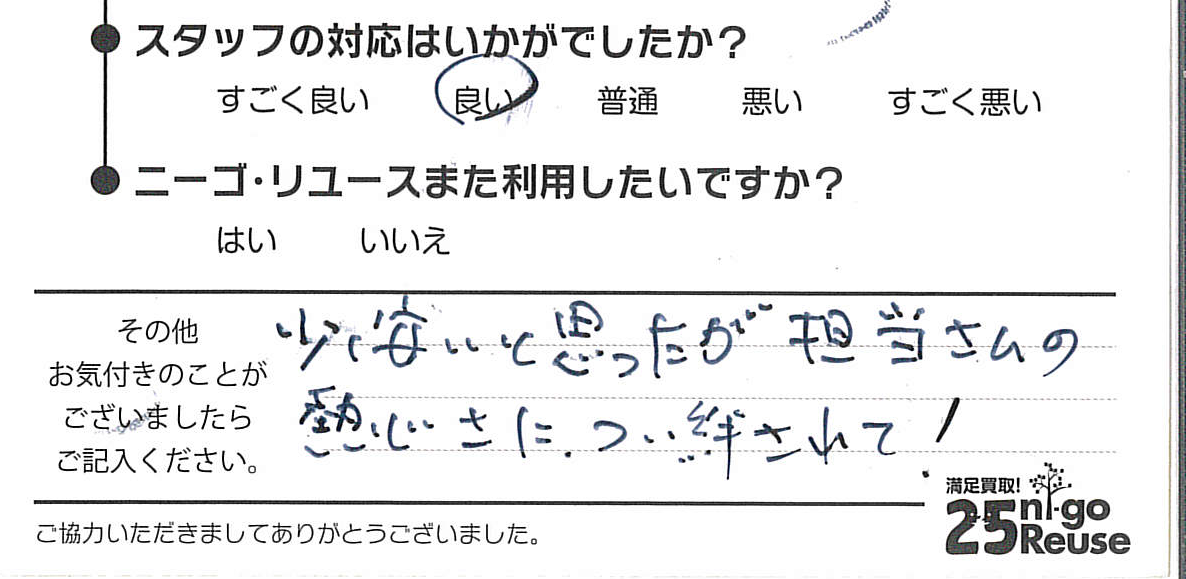 スタッフの対応はいかがでしたか？
すごく良い 良い 普通 悪い すごく悪い
ニーゴ・リユースまた利用したいですか？
はい いいえ
その他
お気付きのことが
ございましたら
ご記入ください。
少し安いと思ったが担当さんの
熱心さに、つい絆されて！
満足買取！
25 ni-go
Reuse
ご協力いただきましてありがとうございました。